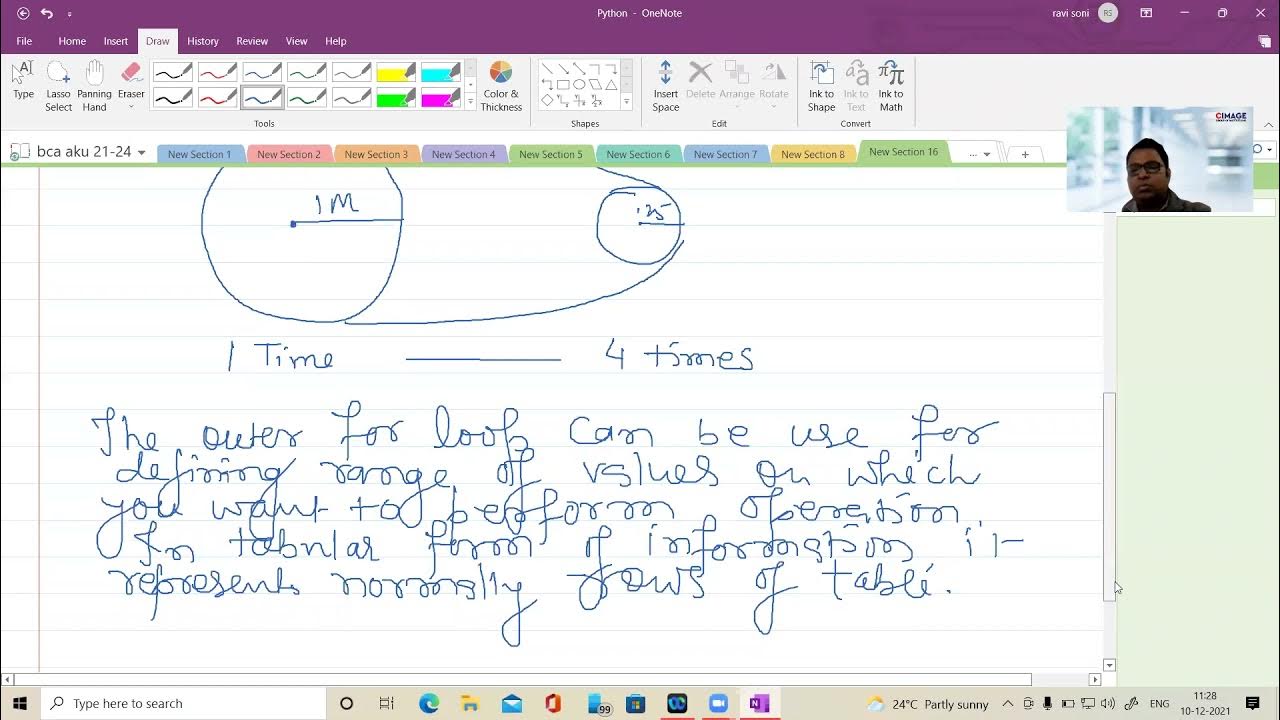 Python - OneNote
ravi soni
RS
File Home Insert Draw History Review View Help
Type
Lasso Select
Panning Hand
Eraser
Color & Thickness
Insert Space
Delete
Arrange
Rotate
Ink to Shape
Ink to Text
Ink to Math
Tools
Shapes
Edit
Convert
CIMAGE
bca aku 21-24
New Section 1
New Section 2
New Section 3
New Section 4
New Section 5
New Section 6
New Section 7
New Section 8
New Section 16
...
1M
.25
1 Time 4 times
The outer for loop can be use for
defining range of values on which
you want to perform operation.
In tabular form of information it
represents normally rows of table.
Type here to search
99
24°C Partly sunny
ENG
11:28
10-12-2021